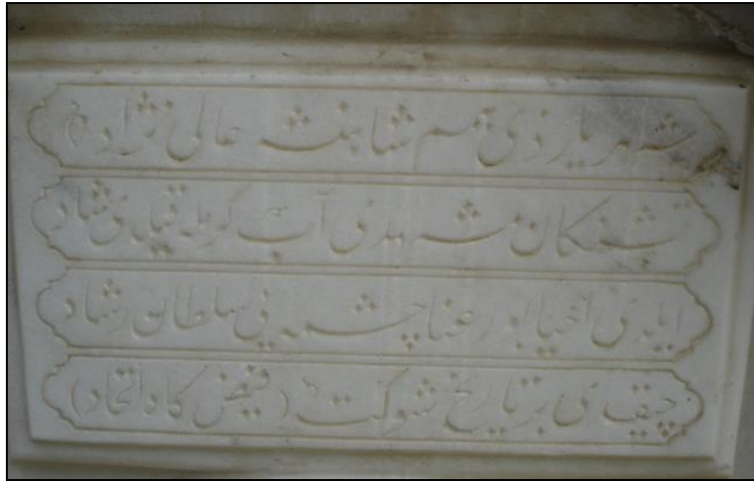 شهریار ذی همم شاهنشه عالی نژاد
تشنکان مشهدی آب کرمله قیلدی شاد
ایلدی احیا بو رعنا چشمه یی سلطان رشاد
چیقدی بر تاریخ شوکت (فیض کاه اتحاد)